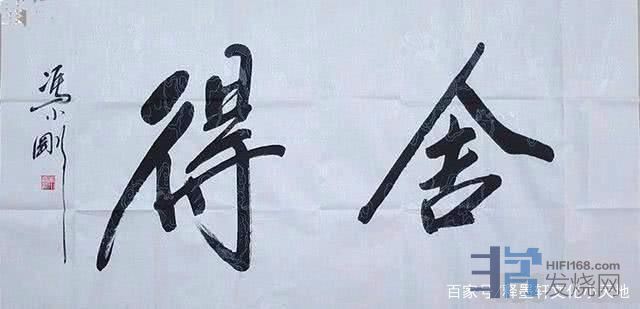 舍得
馮小剛
HIFI168.com
发烧网
百家号/墨轩文化天地